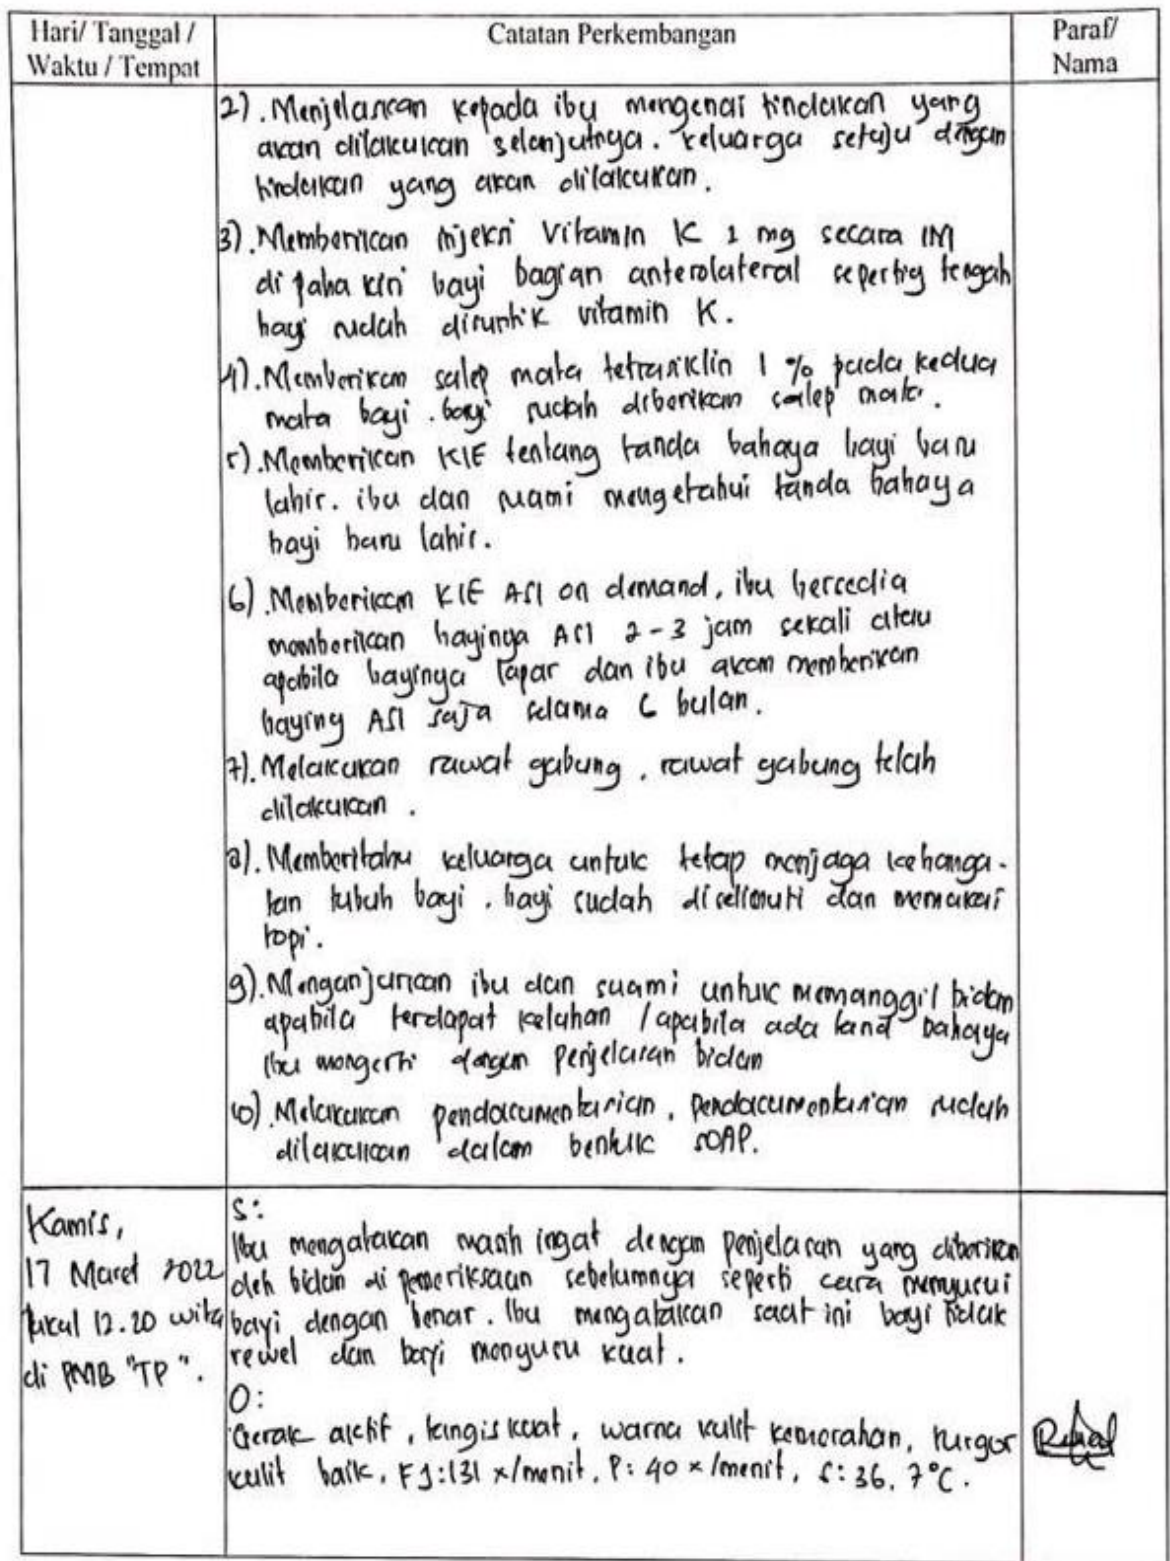 Hari/ Tanggal /
Waktu / Tempat
Catatan Perkembangan
Paraf/
Nama
2). Menjelaskan kepada ibu mengenai tindakan yang
akan dilakukan selanjutnya. keluarga setuju dengan
tindakan yang akan dilakukan.
3). Memberikan injeksi Vitamin K 1 mg secara IM
di paha kiri bayi bagian anterolateral sepertig tengah
bayi sudah disuntik vitamin K.
4). Memberikan salep mata tetrasiklin 1 % pada kedua
mata bayi. bayi sudah diberikan salep mata.
5). Memberikan KIE tentang tanda bahaya bayi baru
lahir. ibu dan suami mengetahui tanda bahaya
bayi baru lahir.
6). Memberikan KIE ASI on demand, ibu bersedia
memberikan bayinya ASI 2-3 jam sekali atau
apabila bayinya lapar dan ibu akan memberikan
baying ASI saja selama 6 bulan.
7). Melakukan rawat gabung, rawat gabung telah
dilakukan.
8). Memberitahu keluarga untuk tetap menjaga kehanga-
tan tubuh bayi. bayi sudah diselimuti dan memakai
topi.
9). Menganjurkan ibu dan suami untuk memanggil bidan
apabila terdapat kelahan / apabila ada tand bahaya
Ibu mengerti dengan penjelasan bidan
10). Melakukan pendocumentasian, pendocumentasian sudah
dilakukan dalam bentuk SOAP.
Kamis,
17 Maret 2022
Pukul 12.20 wita
di PMB "TP".
S:
Ibu mengatakan masih ingat dengan penjelasan yang diberikan
oleh bidan di pemeriksaan sebelumnya seperti cara menyusui
bayi dengan benar. Ibu mengatakan saat ini bayi tidak
rewel dan bayi menyusu kuat.
O:
Gerak aktif, tangis kuat, warna kulit kemerahan, turgor
kulit baik, FJ: 131 x/menit, P: 40 x/menit, S: 36, 7°C.